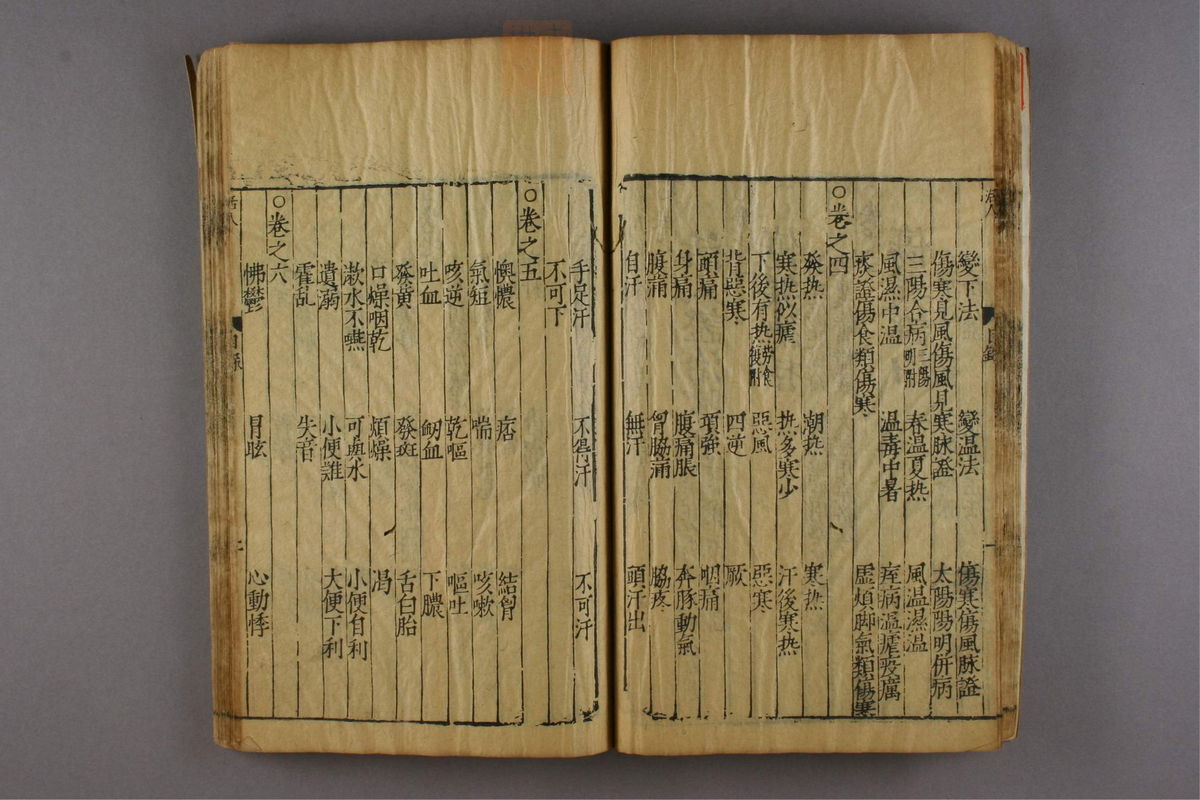 變下法 變温法 傷寒傷風脉證
傷寒見風傷風見寒脉證 太陽陽明併病
三陽合病三陽明附 春温夏热 風温濕温
風濕中温 温毒中暑 痓病温瘧疫癘
痰證傷食類傷寒 虛煩脚氣類傷寒
○卷之四
發热 潮热 寒热
寒热似瘧 热多寒少 汗後寒热
下後有热劳食復附 惡風 惡寒
背惡寒 四逆 厥
頭痛 項強 咽痛
身痛 腹痛脹 奔豚動氣
腹痛 胷脇痛 脇疼
自汗 無汗 頭汗出
手足汗 不得汗 不可汗
不可下
○卷之五
懊憹 痞 結胷
氣短 喘 咳嗽
咳逆 乾嘔 嘔吐
吐血 衂血 下膿
發黄 發斑 舌白胎
口燥咽乾 煩燥 渴
漱水不嚥 可與水 小便自利
遺溺 小便難 大便下利
霍乱 失音
○卷之六
怫鬱 目眩 心動悸
活人
目錄
一
活人
目錄